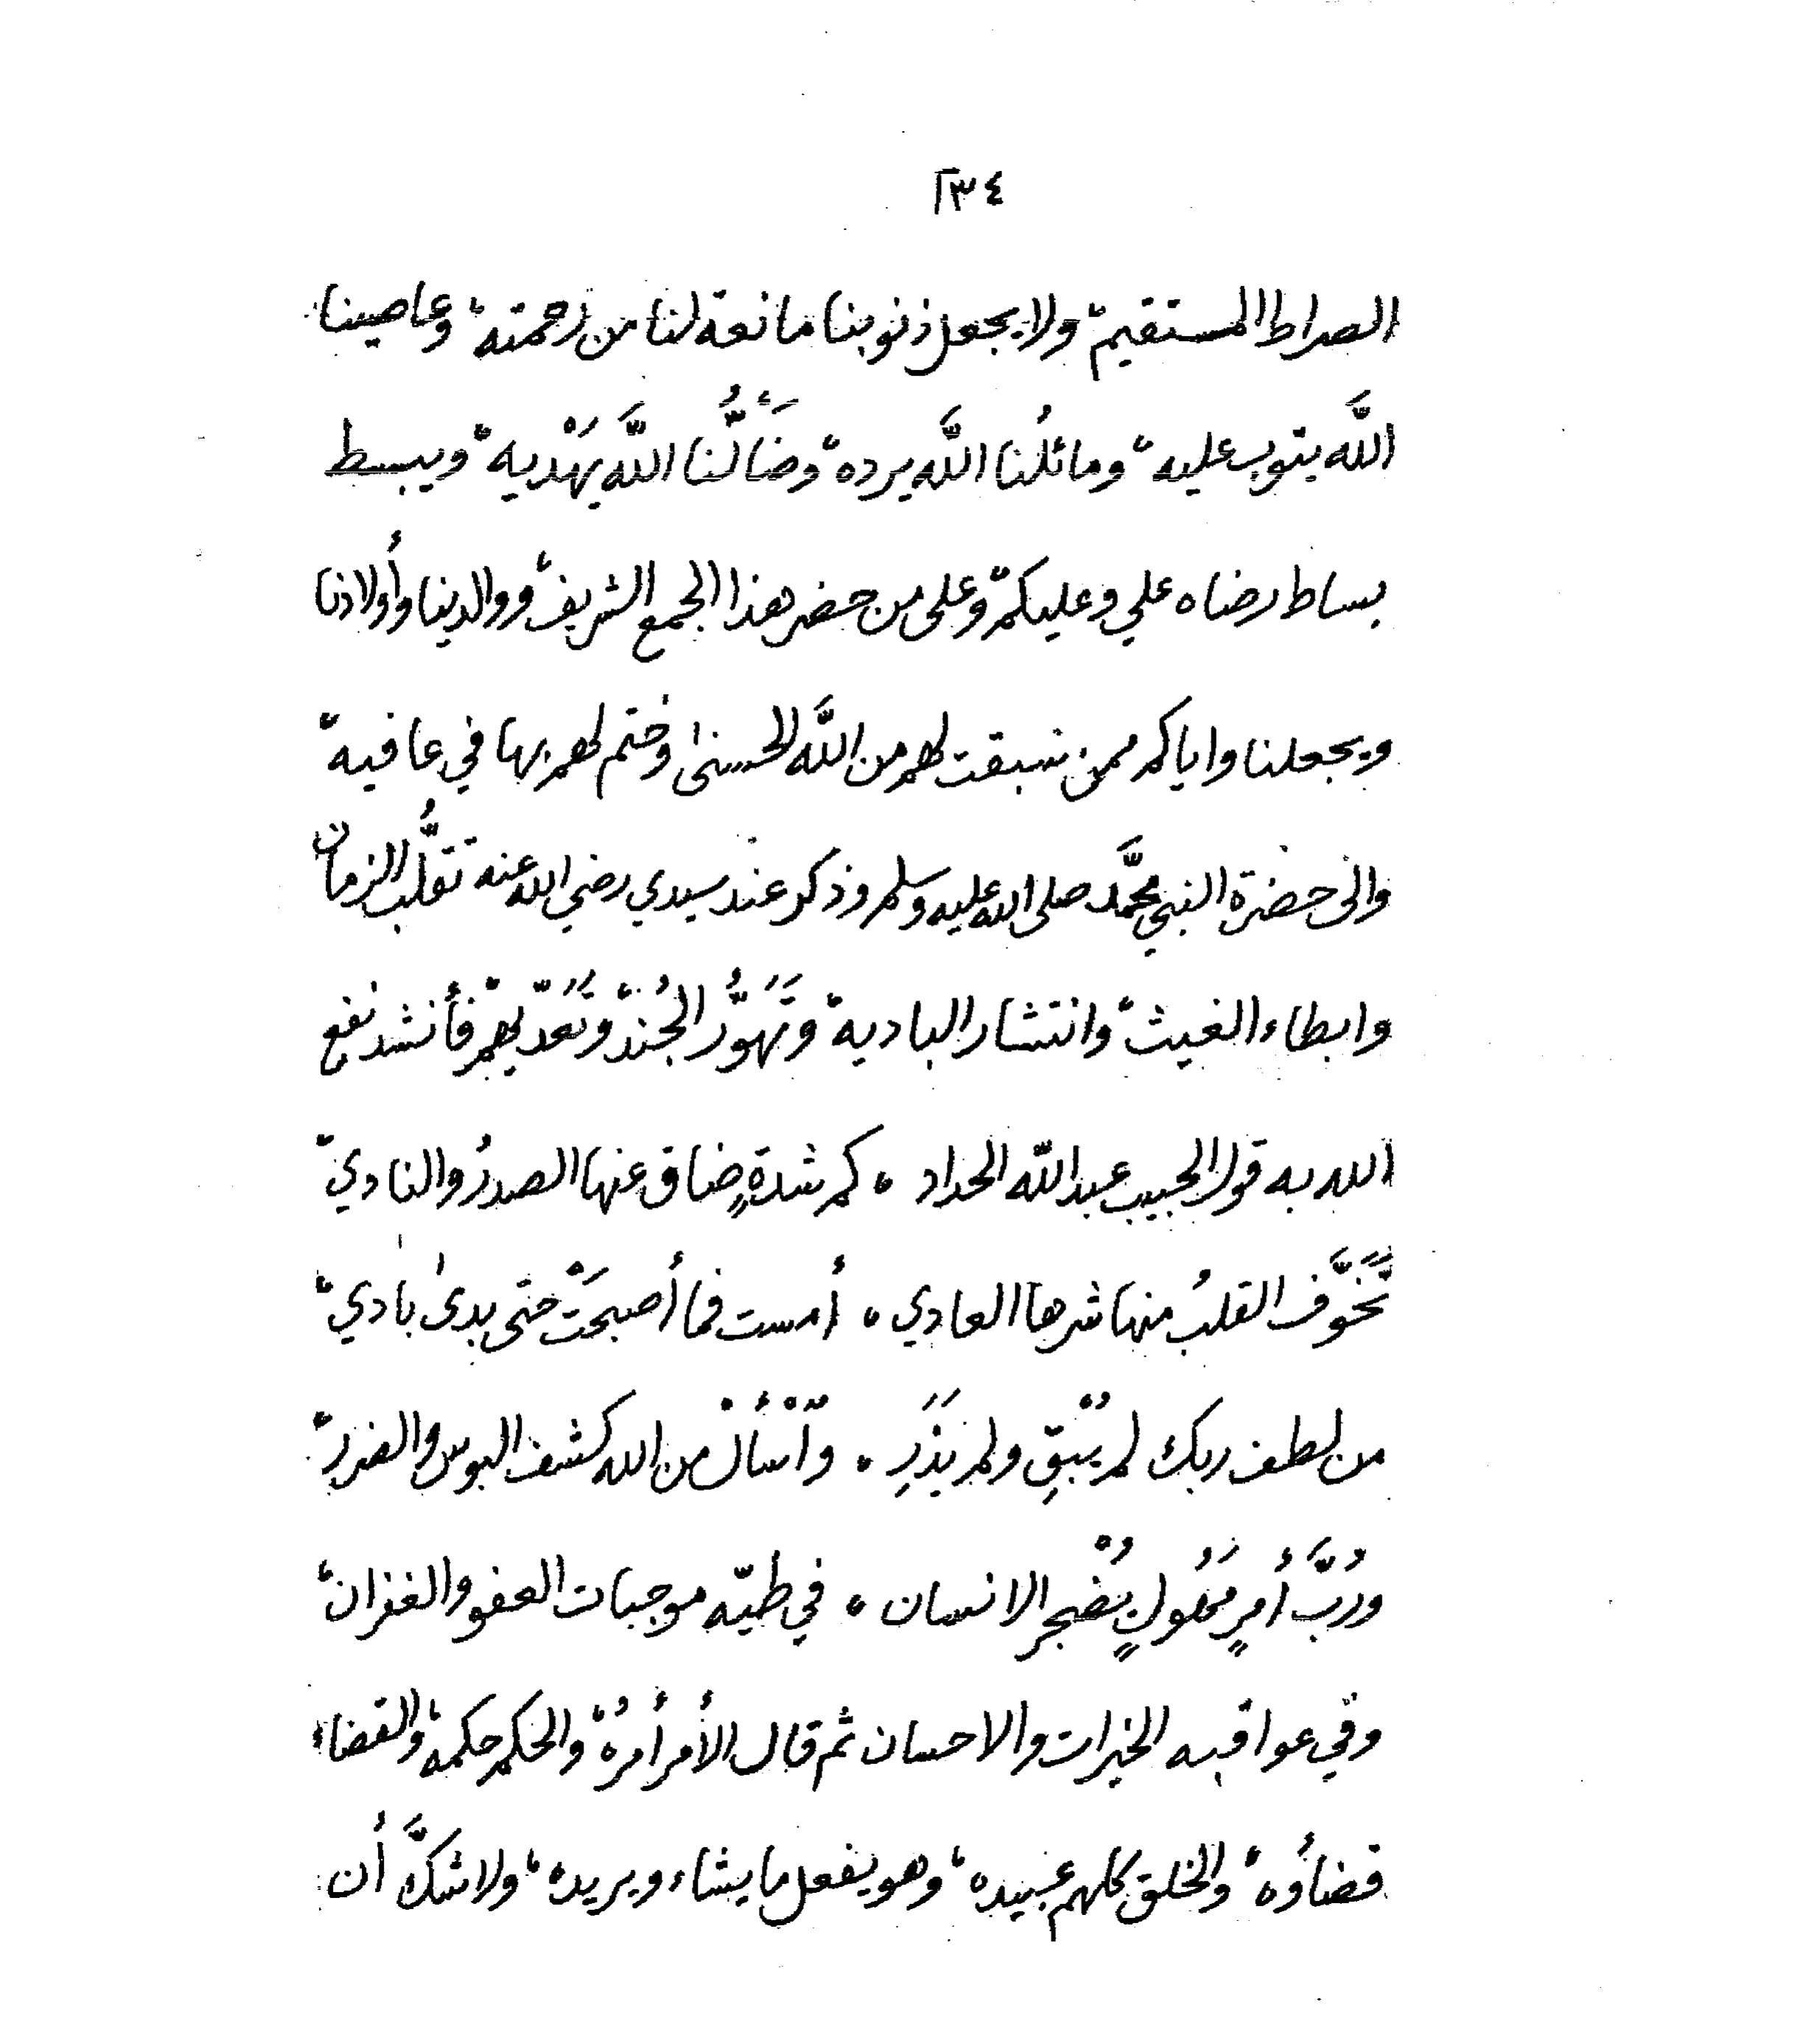 ٢٣٤
الصراط المستقيم، ولا يجعل ذنوبنا مانعة لنا من رحمته، وعاصينا
اللَّه يتوب عليه، ومائلُنا اللَّه يرده، وضَالُّنا اللَّه يَهْديه، ويبسط
بساط رضاه علي وعليكم، وعلى من حضر هذا الجمع الشريف، ووالدينا وأولادنا
ويجعلنا واياكم ممن سبقت لهم من اللَّه الحسنى وختم لهم بها في عافيه،
والى حضرة النبي محمَّد صلى الله عليه وسلم وذكر عند سيدي رضي الله عنه تقلُّب الزمان
وابطاء الغيث، وانتشار البادية، وتَهَوُّر الجُند، وتَعَدّيهم، فأنشد نفع
الله به قول الحبيب عبد اللّه الحداد ، كم شدةٍ ضاق عنها الصدرُ والنادي،
تَخَوَّف القلبُ منها شرها العادي ، أمست فما أصبحَتْ حتى بدى بادي،
من لطف ربك لم يُبْقِ ولم يَذَرِ ، وآسْأَلْ من الله كشف البوس والضرر،
ورُبَّ أمرٍ مَهُولٍ يُضْجر الانسان ، في طيّه موجبات العفو والغفران،
وفي عواقبه الخيرات والاحسان ثم قال الأمر أمرهُ، والحكم حكمه، والقضاء
قضاؤه، والخلق كلهم عبيده، وهو يفعل ما يشاء ويريد، ولا شكَّ أن